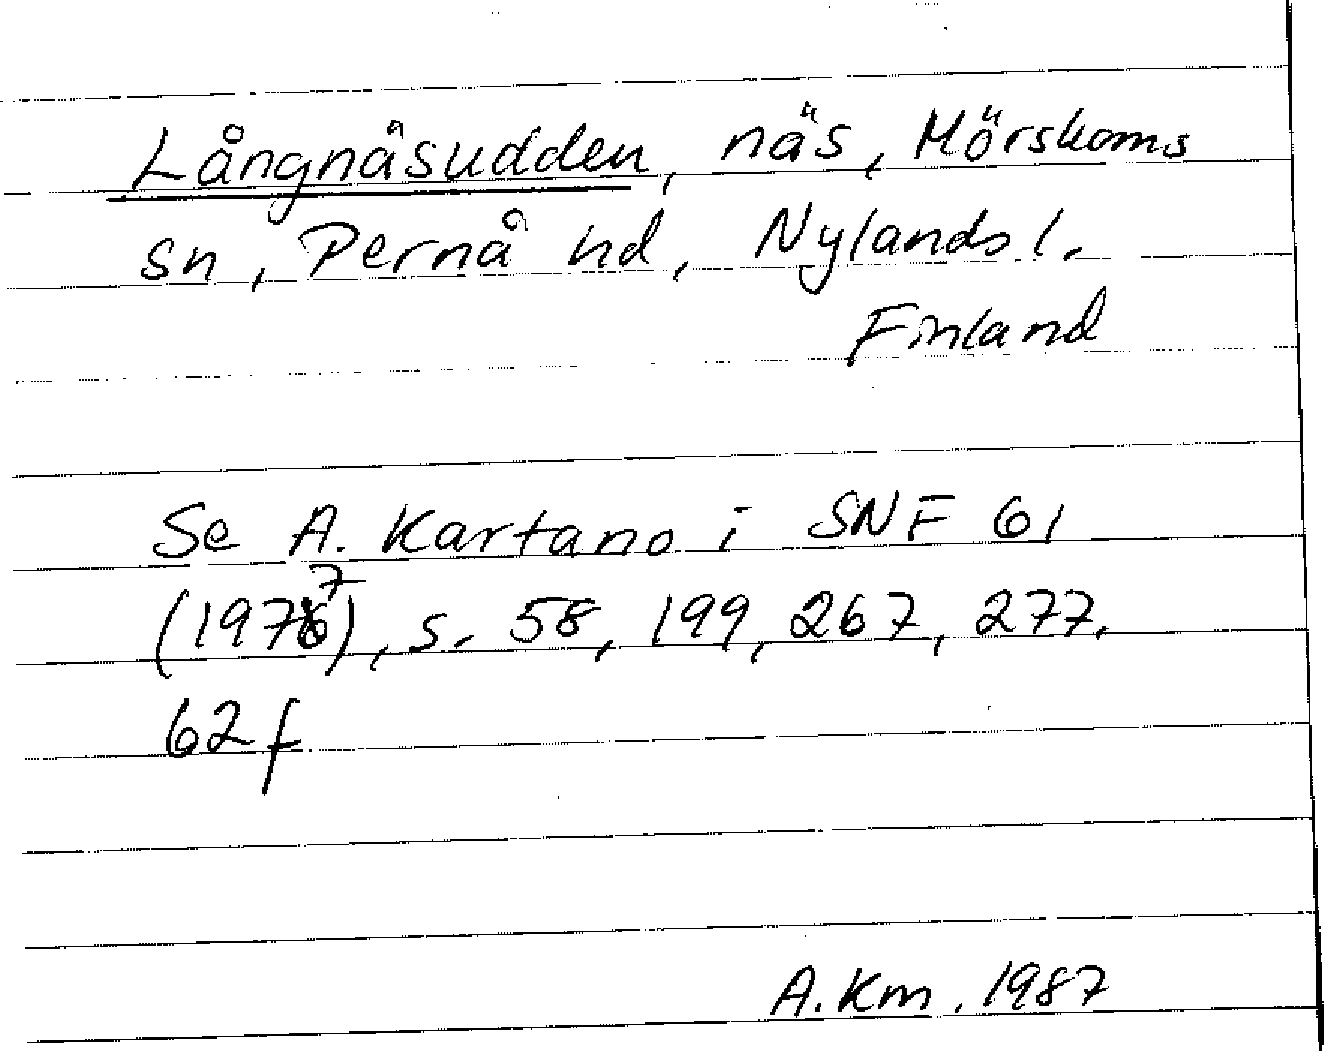 Långnäsudden, näs, Mörskoms
sn, Pernå hd, Nylands l.
Finland
Se A. Kartano i SNF 61
(1977), s. 58, 199, 267, 277.
62 f
A. Km. 1987